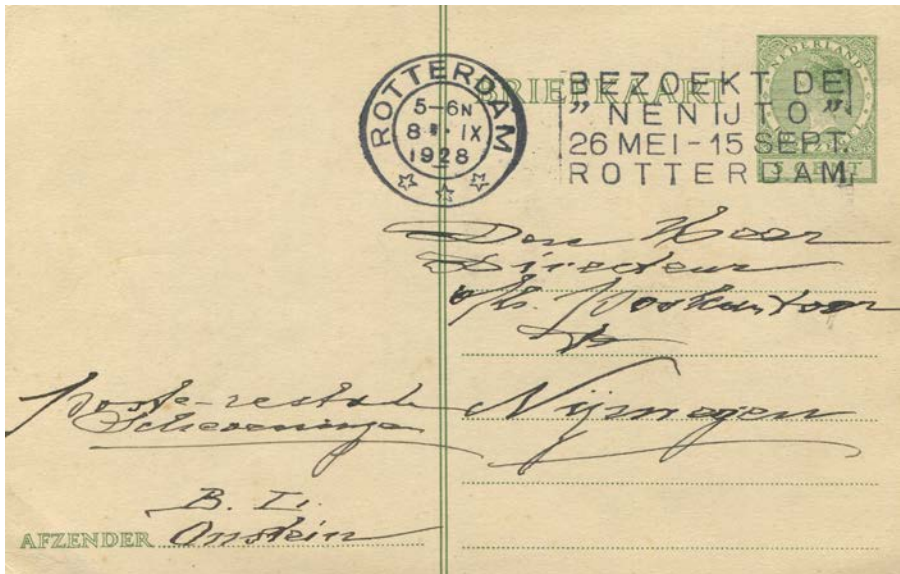 ROTTERDAM
5-6N
8 IX
1928
BRIEFKAART
BEZOEKT DE
„ NENIJTO ”
26 MEI - 15 SEPT.
ROTTERDAM
NEDERLAND
CENT
Den Heer
Directeur
v/h. Postkantoor
te
Nijmegen
Poste-restante
Scheveningen
AFZENDER
Onstein